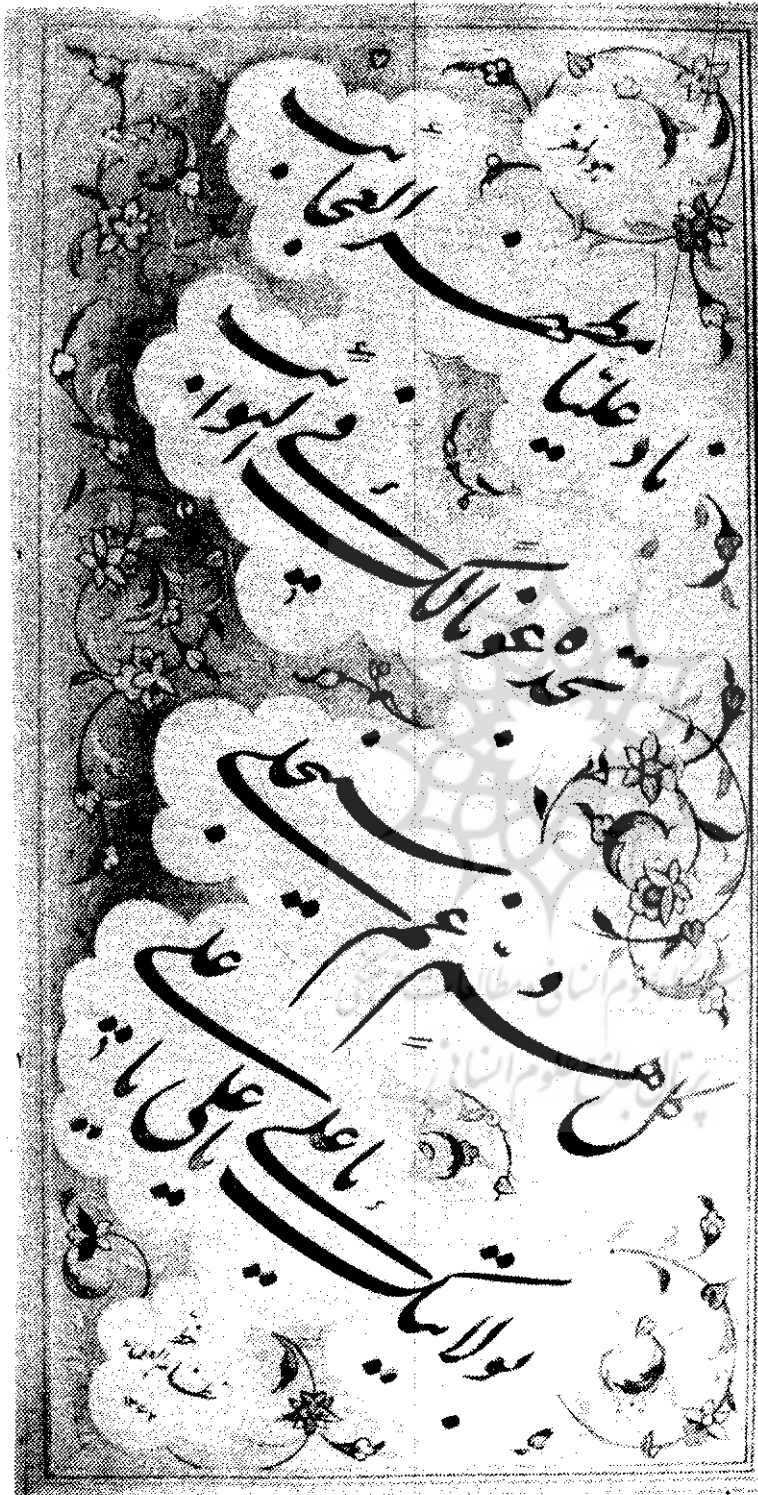 ناد علیًا مظهر العجایب
تجده عونا لک فی النوایب
کل هم و غم سینجلی
بولایتک یا علی یا علی یا علی
علوم انسانی و مطالعات فرهنگی
پرتال جامع علوم انسانی